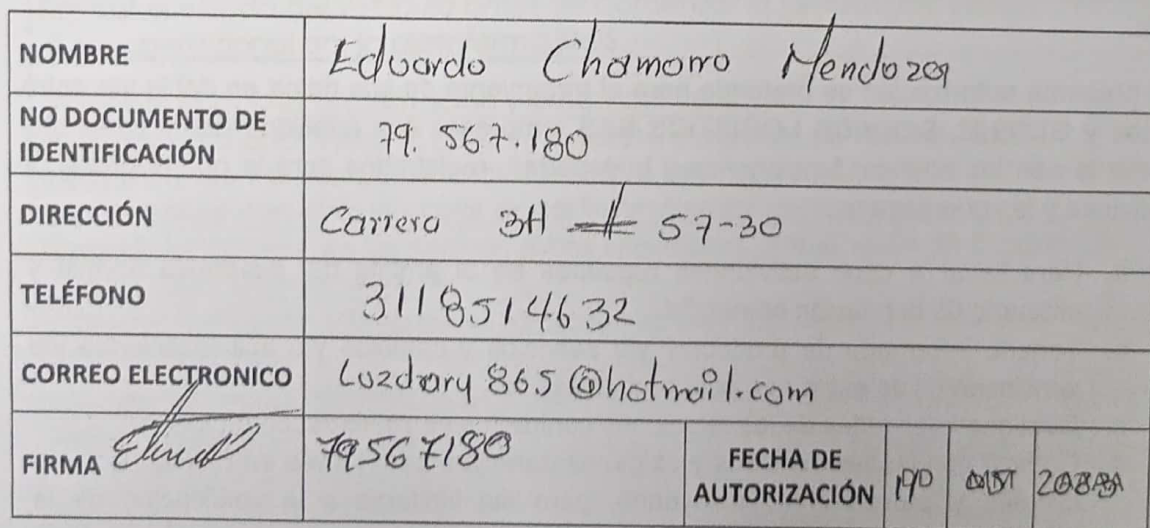 NOMBRE Eduardo Chamorro Mendoza
NO DOCUMENTO DE IDENTIFICACIÓN 79.567.180
DIRECCIÓN Carrera 3H # 57-30
TELÉFONO 3118514632
CORREO ELECTRONICO Luzdary865@hotmail.com
FIRMA 79567180 FECHA DE AUTORIZACIÓN